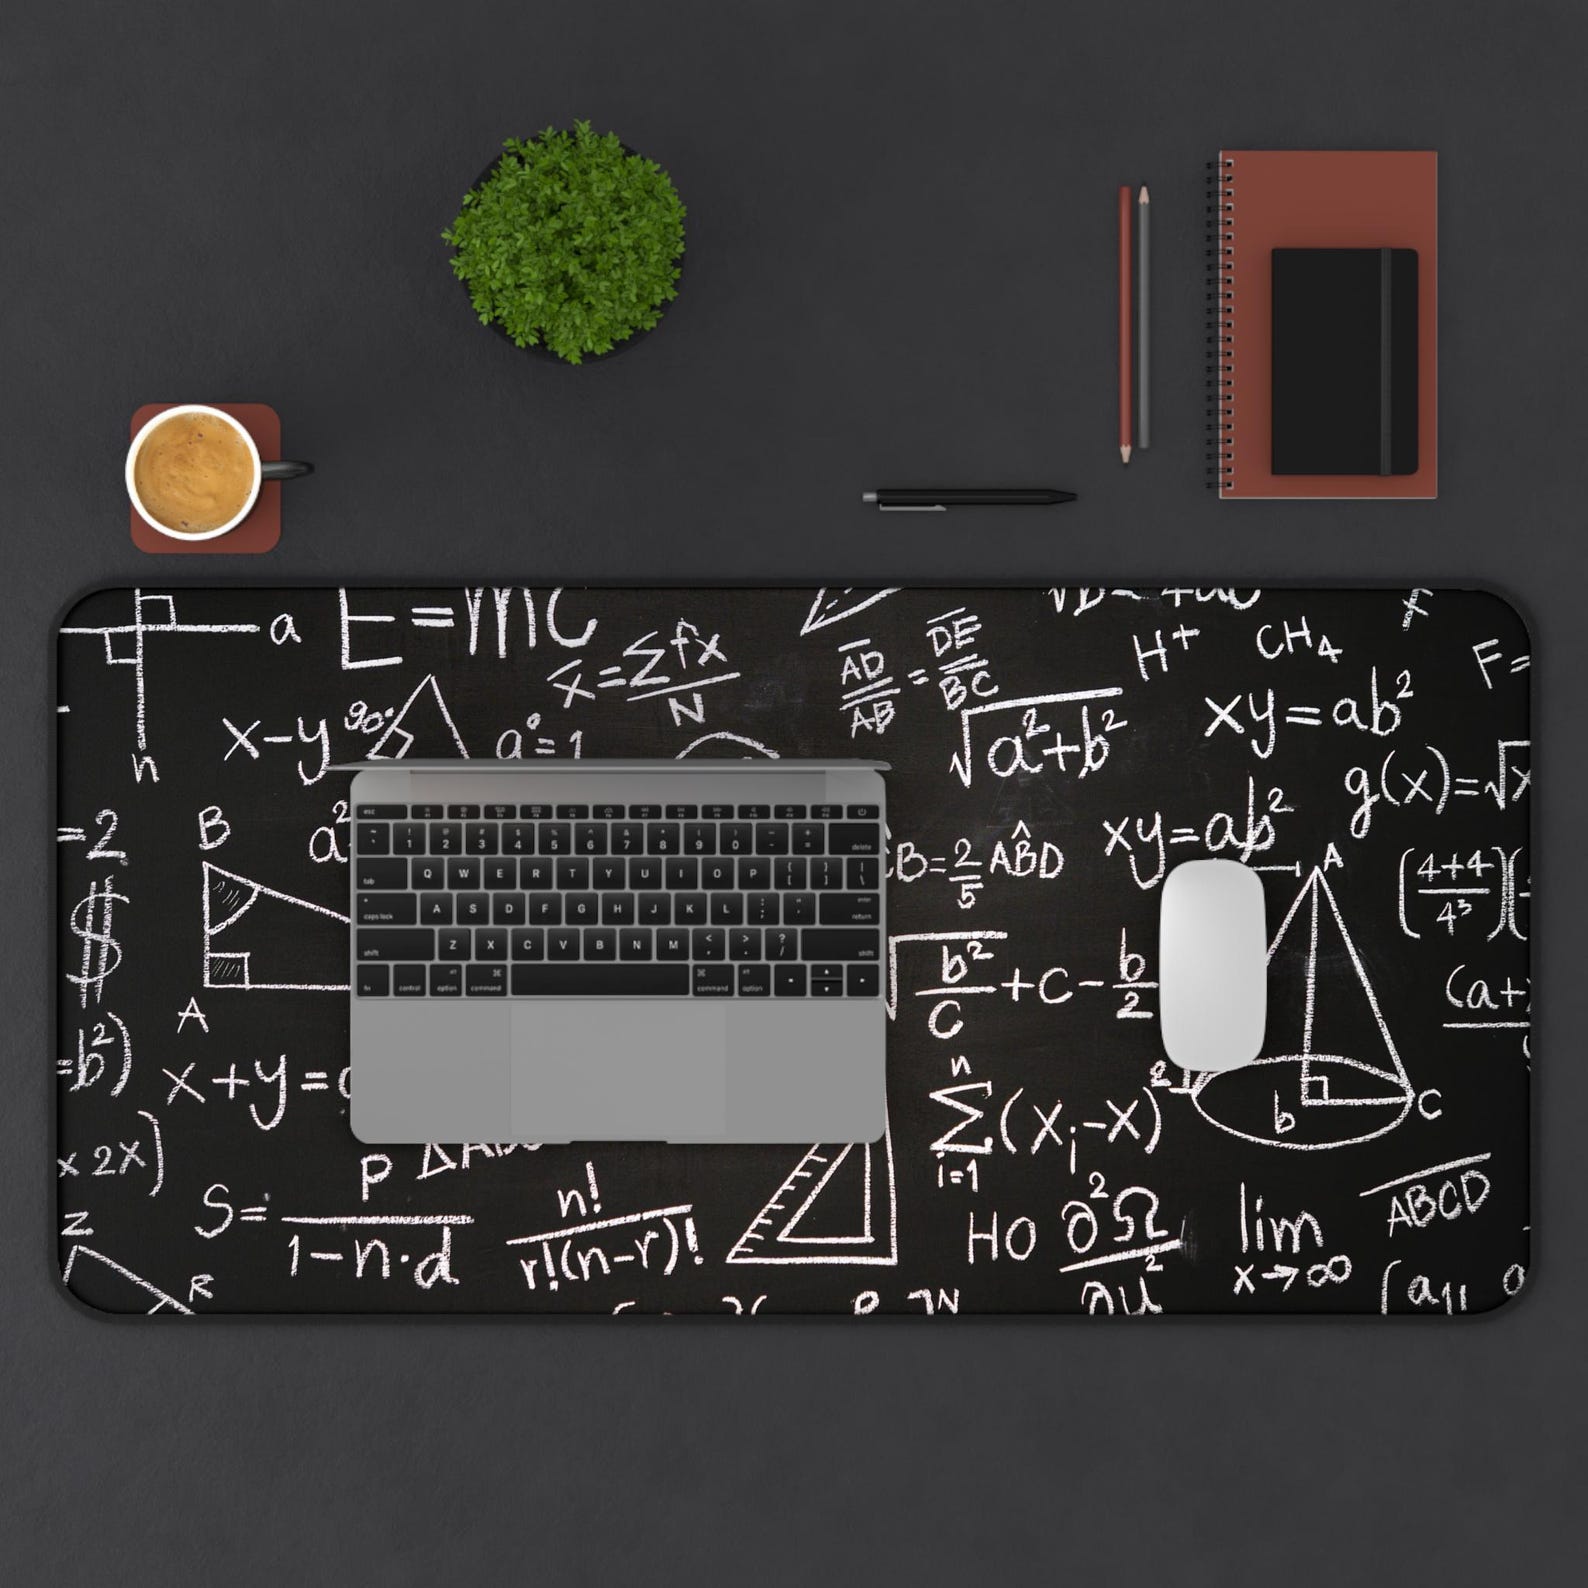 a
E=mc
x̄=∑fx/N
AD/AB=DE/BC
H+ CH4
F=
n
x-y
90°
a°=1
√a²+b²
xy=ab²
g(x)=√x
=2
B
a²
B=2/5 ABD̂
xy=ab²
A
(4+4/4³)(
$
A
b²/C+C-b/2
(a+
=b²)
x+y=
n
∑(xi-x)²
i=1
b
C
x 2x)
P ΔABC
S=
1-n·d
n!
r!(n-r)!
HO ∂²Ω
∂u²
lim
x→∞
ABCD
Z
R
(a11
esc
~ ! @ # $ % ^ & * ( ) _ +
` 1 2 3 4 5 6 7 8 9 0 - = delete
tab Q W E R T Y U I O P { } |
[ ] \
caps lock A S D F G H J K L : " enter
; ' return
shift Z X C V B N M < > ? shift
, . /
fn control alt option ⌘ command ⌘ command alt option